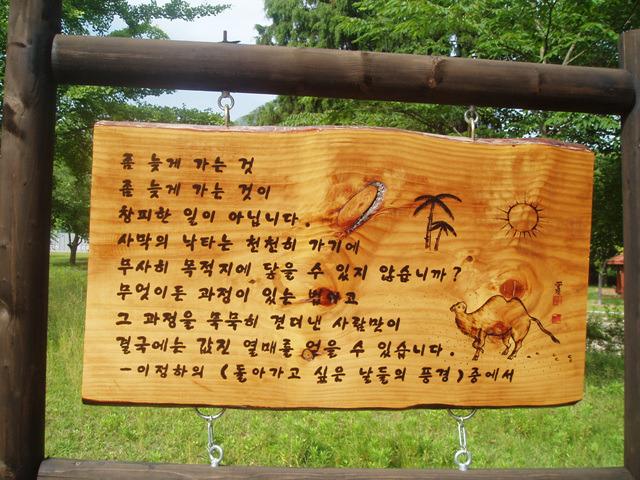 좀 늦게 가는 것
좀 늦게 가는 것이
창피한 일이 아닙니다.
사막의 낙타는 천천히 가기에
무사히 목적지에 닿을 수 있지 않습니까?
무엇이든 과정이 있는 법이고
그 과정을 묵묵히 견뎌낸 사람만이
결국에는 값진 열매를 얻을 수 있습니다.
-이정하의 (돌아가고 싶은 날들의 풍경)중에서